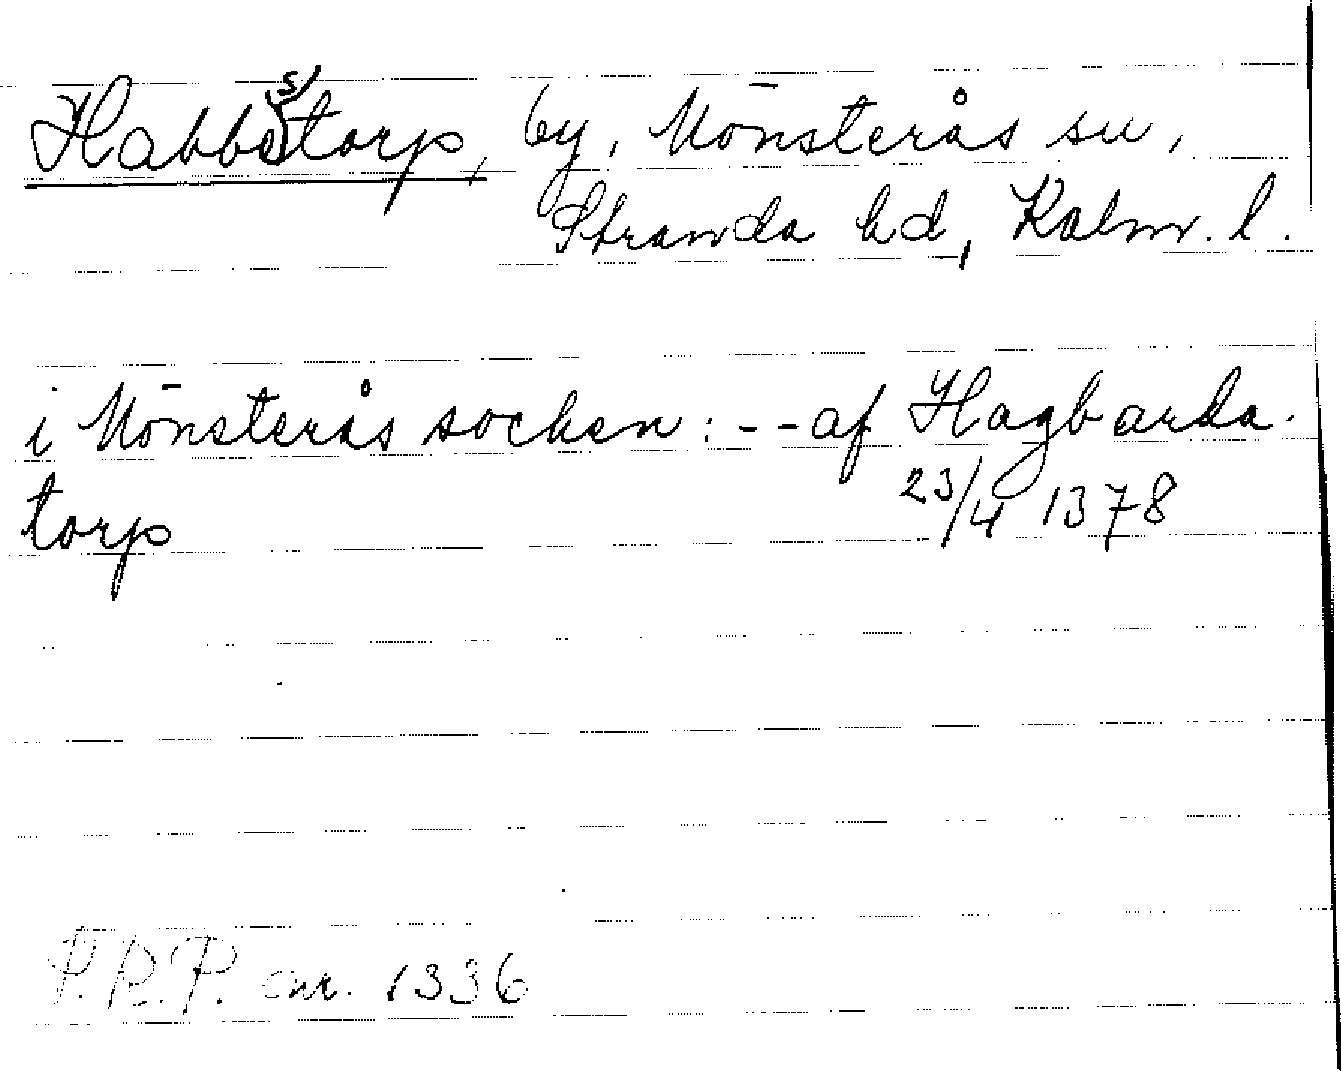 Habbestorp, by, Mönsterås sn,
Stranda hd, Kalm. l.
i Mönsterås socken: -- af Hagbarda-
torp 23/4 1378
P.R.P. nr. 1336